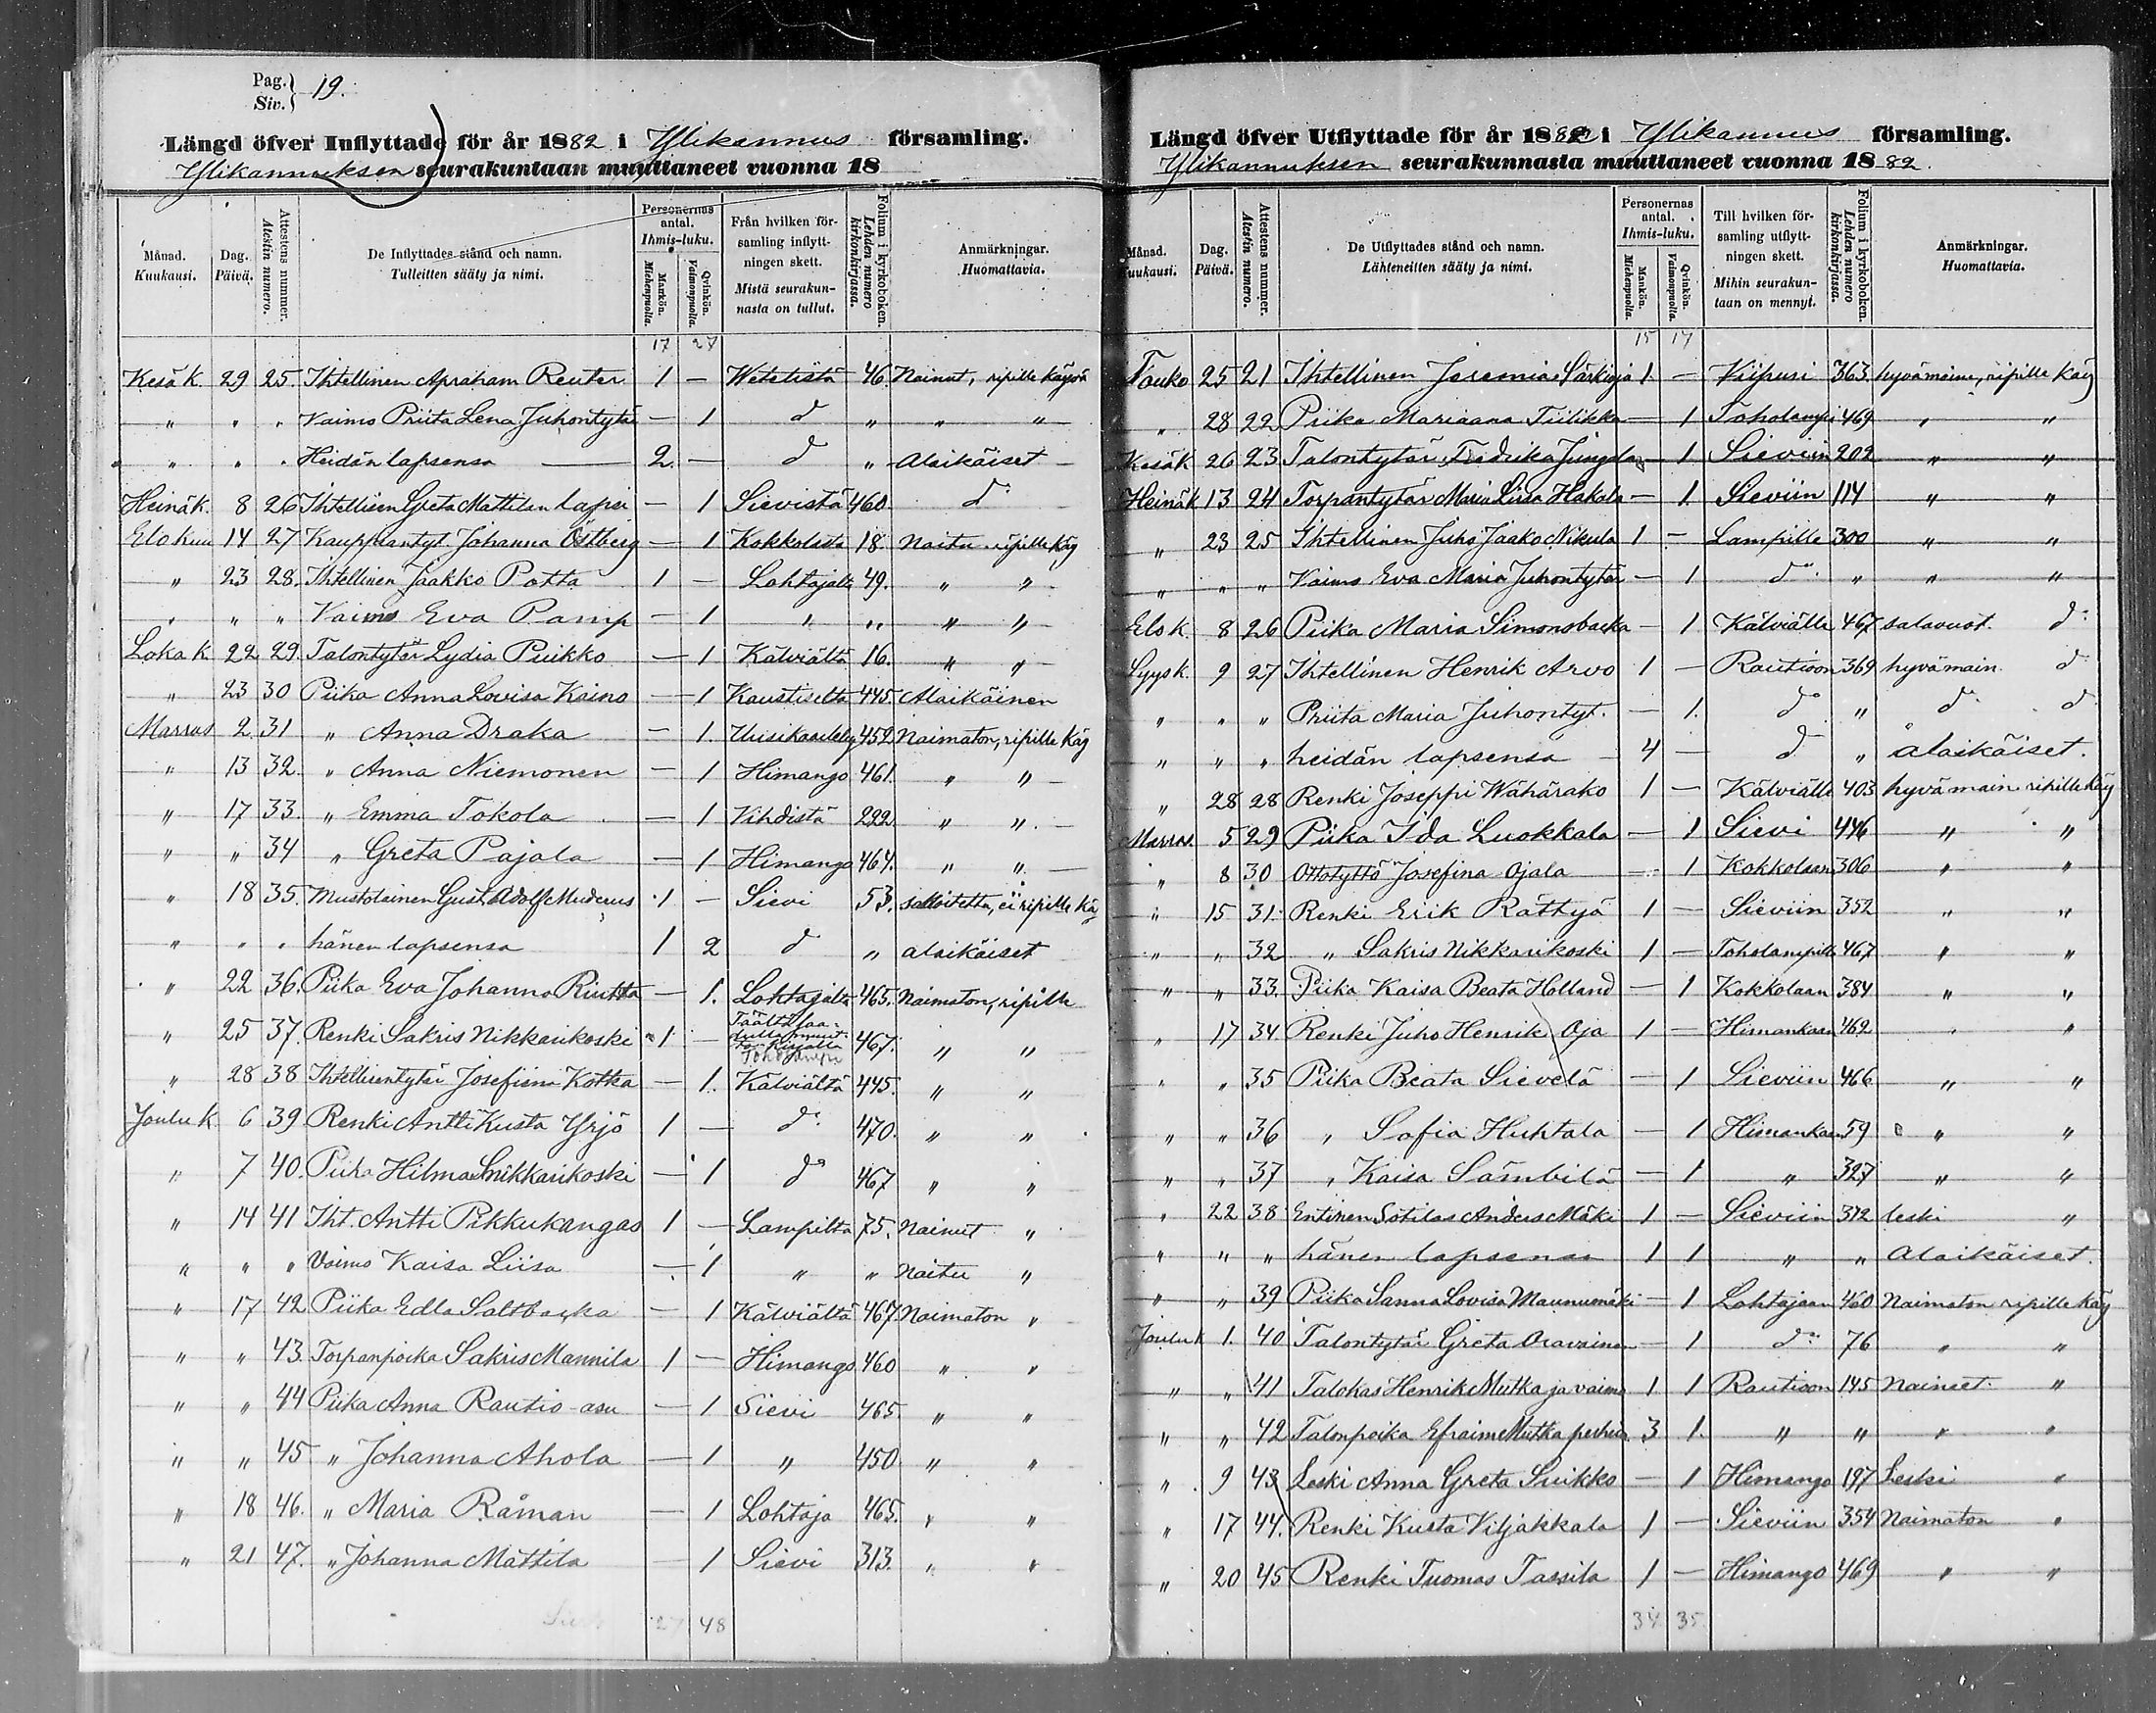 Pag. } 19.
Siv. }
Längd öfver Inflyttade för år 1882 i Ylikannus församling.
Ylikannuksen seurakuntaan muuttaneet vuonna 18
Månad. Kuukausi. | Dag. Päivä. | Attestens nummer. Atestin numero. | De Inflyttades stånd och namn. Tulleitten sääty ja nimi. | Personernas antal. Ihmis-luku. Mankön. Miehenpuolia. Qvinkön. Vaimonpuolia. | Från hvilken församling inflyttningen skett. Mistä seurakunnasta on tullut. | Folium i kyrkoboken. Lehden numero kirkonkirjassa. | Anmärkningar. Huomattavia.
17 27
Kesäk. 29 25 Ihtellinen Apraham Reuter 1 — Wetelistä 46 Nainut, ripille käypä
" " " Vaimo Priita Lena Juhontytär — 1 do " " "
" " " Heidän lapsensa — 2 — do " Alaikäiset
Heinäk. 8 26 Ihtellisen Greta Mattilan lapsi — 1 Sievistä 460 do
Elokuu 14 27 Kauppiantyt. Johanna Östberg — 1 Kokkolista 18. Naitu ripille käy
" 23 28. Ihtellinen Jaakko Potta 1 — Lohtajalta 49. " "
" " " Vaimo Eva Pamp — 1 " " " "
Loka k. 22 29. Talontytär Lydia Puikko — 1 Kälviältä 16. " "
" 23 30 Piika Anna Lovisa Kaino — 1 Kaustiselta 445. Alaikäinen
Marras 2. 31 " Anna Draka — 1. Uusikaarleby 452 Naimaton, ripille käy
" 13 32. " Anna Niemonen — 1 Himango 461. " "
" 17 33. " Emma Tokola — 1 Vihdistä 222. " "
" " 34 " Greta Pajala — 1 Himango 464. " "
" 18 35. Mustolainen Gust. Adolf Muderus 1 — Sievi 53. ei ripille käy
" " " hänen lapsensa 1 2 do " alaikäiset
" 22 36. Piika Eva Johanna Riutta — 1. Lohtajalta 465. Naimaton, ripille
" 25 37. Renki Sakris Nikkarikoski 1 — Täältä saadulla muuttokirjalla Toholampi 467. " "
" 28 38 Ihtellisentytär Josefiina Kotka — 1. Kälviältä 445. " "
Joulu k. 6 39 Renki Antti Kusta Yrjö 1 — do 470. " "
" 7 40. Piika Hilma Snikkarikoski — 1 do 467 " "
" 14 41 Iht. Antti Pikkukangas 1 — Lampilta 75. Nainut "
" " " Vaimo Kaisa Liisa — 1 " " Naitu "
" 17 42 Piika Edla Saltbacka — 1 Kälviältä 467 Naimaton "
" " 43. Torpanpoika Sakris Mannila 1 — Himango 460 " "
" " 44 Piika Anna Rautio-asu — 1 Sievi 465. " "
" " 45 " Johanna Ahola — 1 " 450 " "
" 18 46. " Maria Råman — 1 Lohtaja 465. " "
" 21 47. " Johanna Mattila 1 Sievi 313. " "
27 48
Längd öfver Utflyttade för år 1882 i Ylikannus församling.
Ylikannuksen seurakunnasta muuttaneet vuonna 1882.
Månad. Kuukausi. | Dag. Päivä. | Attestens nummer. Atestin numero. | De Utflyttades stånd och namn. Lähteneitten sääty ja nimi. | Personernas antal. Ihmis-luku. Mankön. Miehenpuolia. Qvinkön. Vaimonpuolia. | Till hvilken församling utflyttningen skett. Mihin seurakuntaan on mennyt. | Folium i kyrkoboken. Lehden numero kirkonkirjassa. | Anmärkningar. Huomattavia.
15 17
Touko 25 21 Ihtellinen Jeremias Särkioja 1 — Viipuri 363. hyvämaine, ripille käy
" 28 22 Piika Mariaana Tiilikka — 1 Toholampi 469 " "
Kesäk 26 23 Talontytär Fredrika Jungala — 1 Sieviin 202 " "
Heinäk 13 24 Torpantytär Maria Liisa Hakala — 1. Sieviin 114 " "
" 23 25 Ihtellinen Juho Jaako Nikula 1 — Lampille 300 " "
" " " Vaimo Eva Maria Juhontytär — 1 do " " "
Elok. 8 26 Piika Maria Simonsbacka — 1 Kälviälle 467 salavuot. do
Syysk. 9 27 Ihtellinen Henrik Arvo 1 — Rautioon 369 hyvämain do
" " " Priita Maria Juhontyt. — 1. do " do do
" " " heidän lapsensa 4 — do " alaikäiset.
" 28 28 Renki Joseppi Wähärako 1 — Kälviälle 403 hyvä main ripille käy
Marras. 5 29 Piika Ida Luokkala — 1 Sievi 446 " "
" 8 30 Ottotyttö Josefina Ojala — 1 Kokkolaan 306 " "
" 15 31. Renki Erik Rättyä 1 — Sieviin 352 " "
" " 32 " Sakris Nikkarikoski 1 — Toholampille 467 " "
" " 33. Piika Kaisa Beata Holland — 1 Kokkolaan 384 " "
" 17 34. Renki Juho Henrik Oja 1 — Himankaan 462 " "
" " 35 Piika Beata Sievelä — 1 Sieviin 466 " "
" " 36 " Sofia Huhtala — 1 Himankaan 59 " "
" " 37 " Kaisa Sämbilä — 1 " 327 " "
" 22 38 Entinen Sotilas Anders Mäki 1 — Sieviin 372 leski "
" " " hänen lapsensa 1 1 " " Alaikäiset.
" " 39 Piika Sanna Lovisa Maunumäki — 1 Lohtajaan 460 Naimaton ripille käy
Joulu k 1. 40 Talontytär Greta Oravainen — 1 do 76 " "
" " 41 Talokas Henrik Mutka ja vaimo 1 1 Rautioon 145 Naineet "
" " 42 Talonpoika Efraim Mutka perhe 3 1. " " " "
" 9 43 Leski Anna Greta Suikko — 1 Himango 197 Leski "
" 17 44. Renki Kusta Viljakkala 1 — Sieviin 354 Naimaton "
" 20 45 Renki Tuomas Tassila 1 — Himango 469 " "
34 35